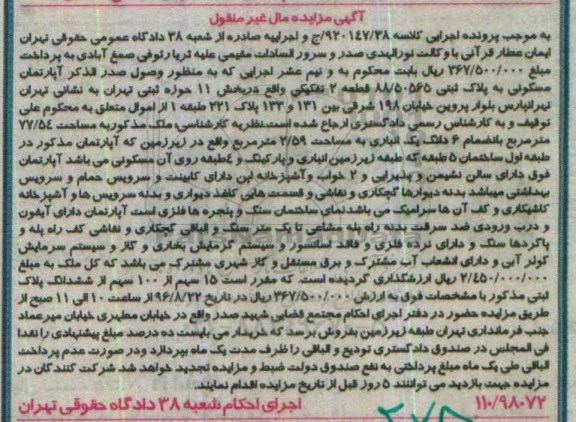 آگهی مزایده مال غیر منقول
به موجب پرونده اجرایی کلاسه ۹۲۰۱۴۷/۳۸/ج و اجراییه صادره از شعبه ۳۸ دادگاه عمومی حقوقی تهران
ایمان عطار قرآنی با وکالت نورالهدی صدر و سرور السادات مقیمی علیه ثریا رئوفی صمغ آبادی به پرداخت
مبلغ ۳۶۷/۵۰۰/۰۰۰ ریال بابت محکوم به و نیم عشر اجرایی که به منظور وصول صدر الذکر آپارتمان
مسکونی به پلاک ثبتی ۸۸/۵۰۵۶۵ قطعه ۲ تفکیکی واقع در بخش ۱۱ حوزه ثبتی تهران به نشانی تهران
تهرانپارس بلوار پروین خیابان ۱۹۸ شرقی بین ۱۳۱ و ۱۳۳ پلاک ۲۲۱ طبقه ۱ از اموال متعلق به محکوم علی
توقیف و به کارشناس رسمی دادگستری ارجاع شده است.نظریه کارشناسی: ملک مذکور به مساحت ۷۷/۵۴
مترمربع بانضمام ۶ دانگ یک انباری به مساحت ۲/۵۹ مترمربع واقع در زیرزمین که آپارتمان مذکور در
طبقه اول ساختمان ۵ طبقه که طبقه زیرزمین انباری و پارکینگ و ۴طبقه روی آن مسکونی می باشد آپارتمان
فوق دارای سالن نشیمن و پذیرایی و ۲ خواب وآشپزخانه اپن دارای کابینت و سرویس حمام و سرویس
بهداشتی میباشد بدنه دیوارها گچکاری و نقاشی و قسمت هایی کاغذ دیواری و بدنه سرویس ها و آشپزخانه
کاشیکاری و کف آن ها سرامیک می باشد.نمای ساختمان سنگ و پنجره ها فلزی است آپارتمان دارای آیفون
و درب ورودی ضد سرقت بدنه راه پله مشاعی تا یک متر سنگ و الباقی گچکاری و نقاشی کف راه پله و
پاگردها سنگ و دارای نرده فلزی و فاقد آسانسور و سیستم گرمایش بخاری و گاز و سیستم سرمایش
کولر آبی و دارای انشعاب آب مشترک و برق مستقل و گاز شهری مشترک می باشد که کل ملک به مبلغ
۲/۴۵۰/۰۰۰/۰۰۰ ریال ارزشگذاری گردیده است. که مقرر است ۱۵ سهم از ۱۰۰ سهم از ششدانگ پلاک
ثبتی مذکور با مشخصات فوق به ارزش ۳۶۷/۵۰۰/۰۰۰ ریال در تاریخ ۹۶/۸/۲۲ از ساعت ۱۰ الی ۱۱ صبح از
طریق مزایده حضور در دفتر اجرای احکام مجتمع قضایی شهید صدر واقع در خیابان مطهری خیابان میرعماد
جنب فرمانداری تهران طبقه زیرزمین بفروش برسد که خریدار می بایست ده درصد مبلغ پیشنهادی را نقدا
فی المجلس در صندوق دادگستری تودیع و الباقی را ظرف مدت یک ماه بپردازد ودر صورت عدم پرداخت
الباقی طی یک ماه مبلغ پرداختی به نفع صندوق دولت ضبط و مزایده تجدید خواهد شد شرکت کنندگان در
مزایده جهت بازدید می توانند ۵ روز قبل از تاریخ مزایده اقدام نمایند.
۱۱۰/۹۸۰۷۲ اجرای احکام شعبه ۳۸ دادگاه حقوقی تهران